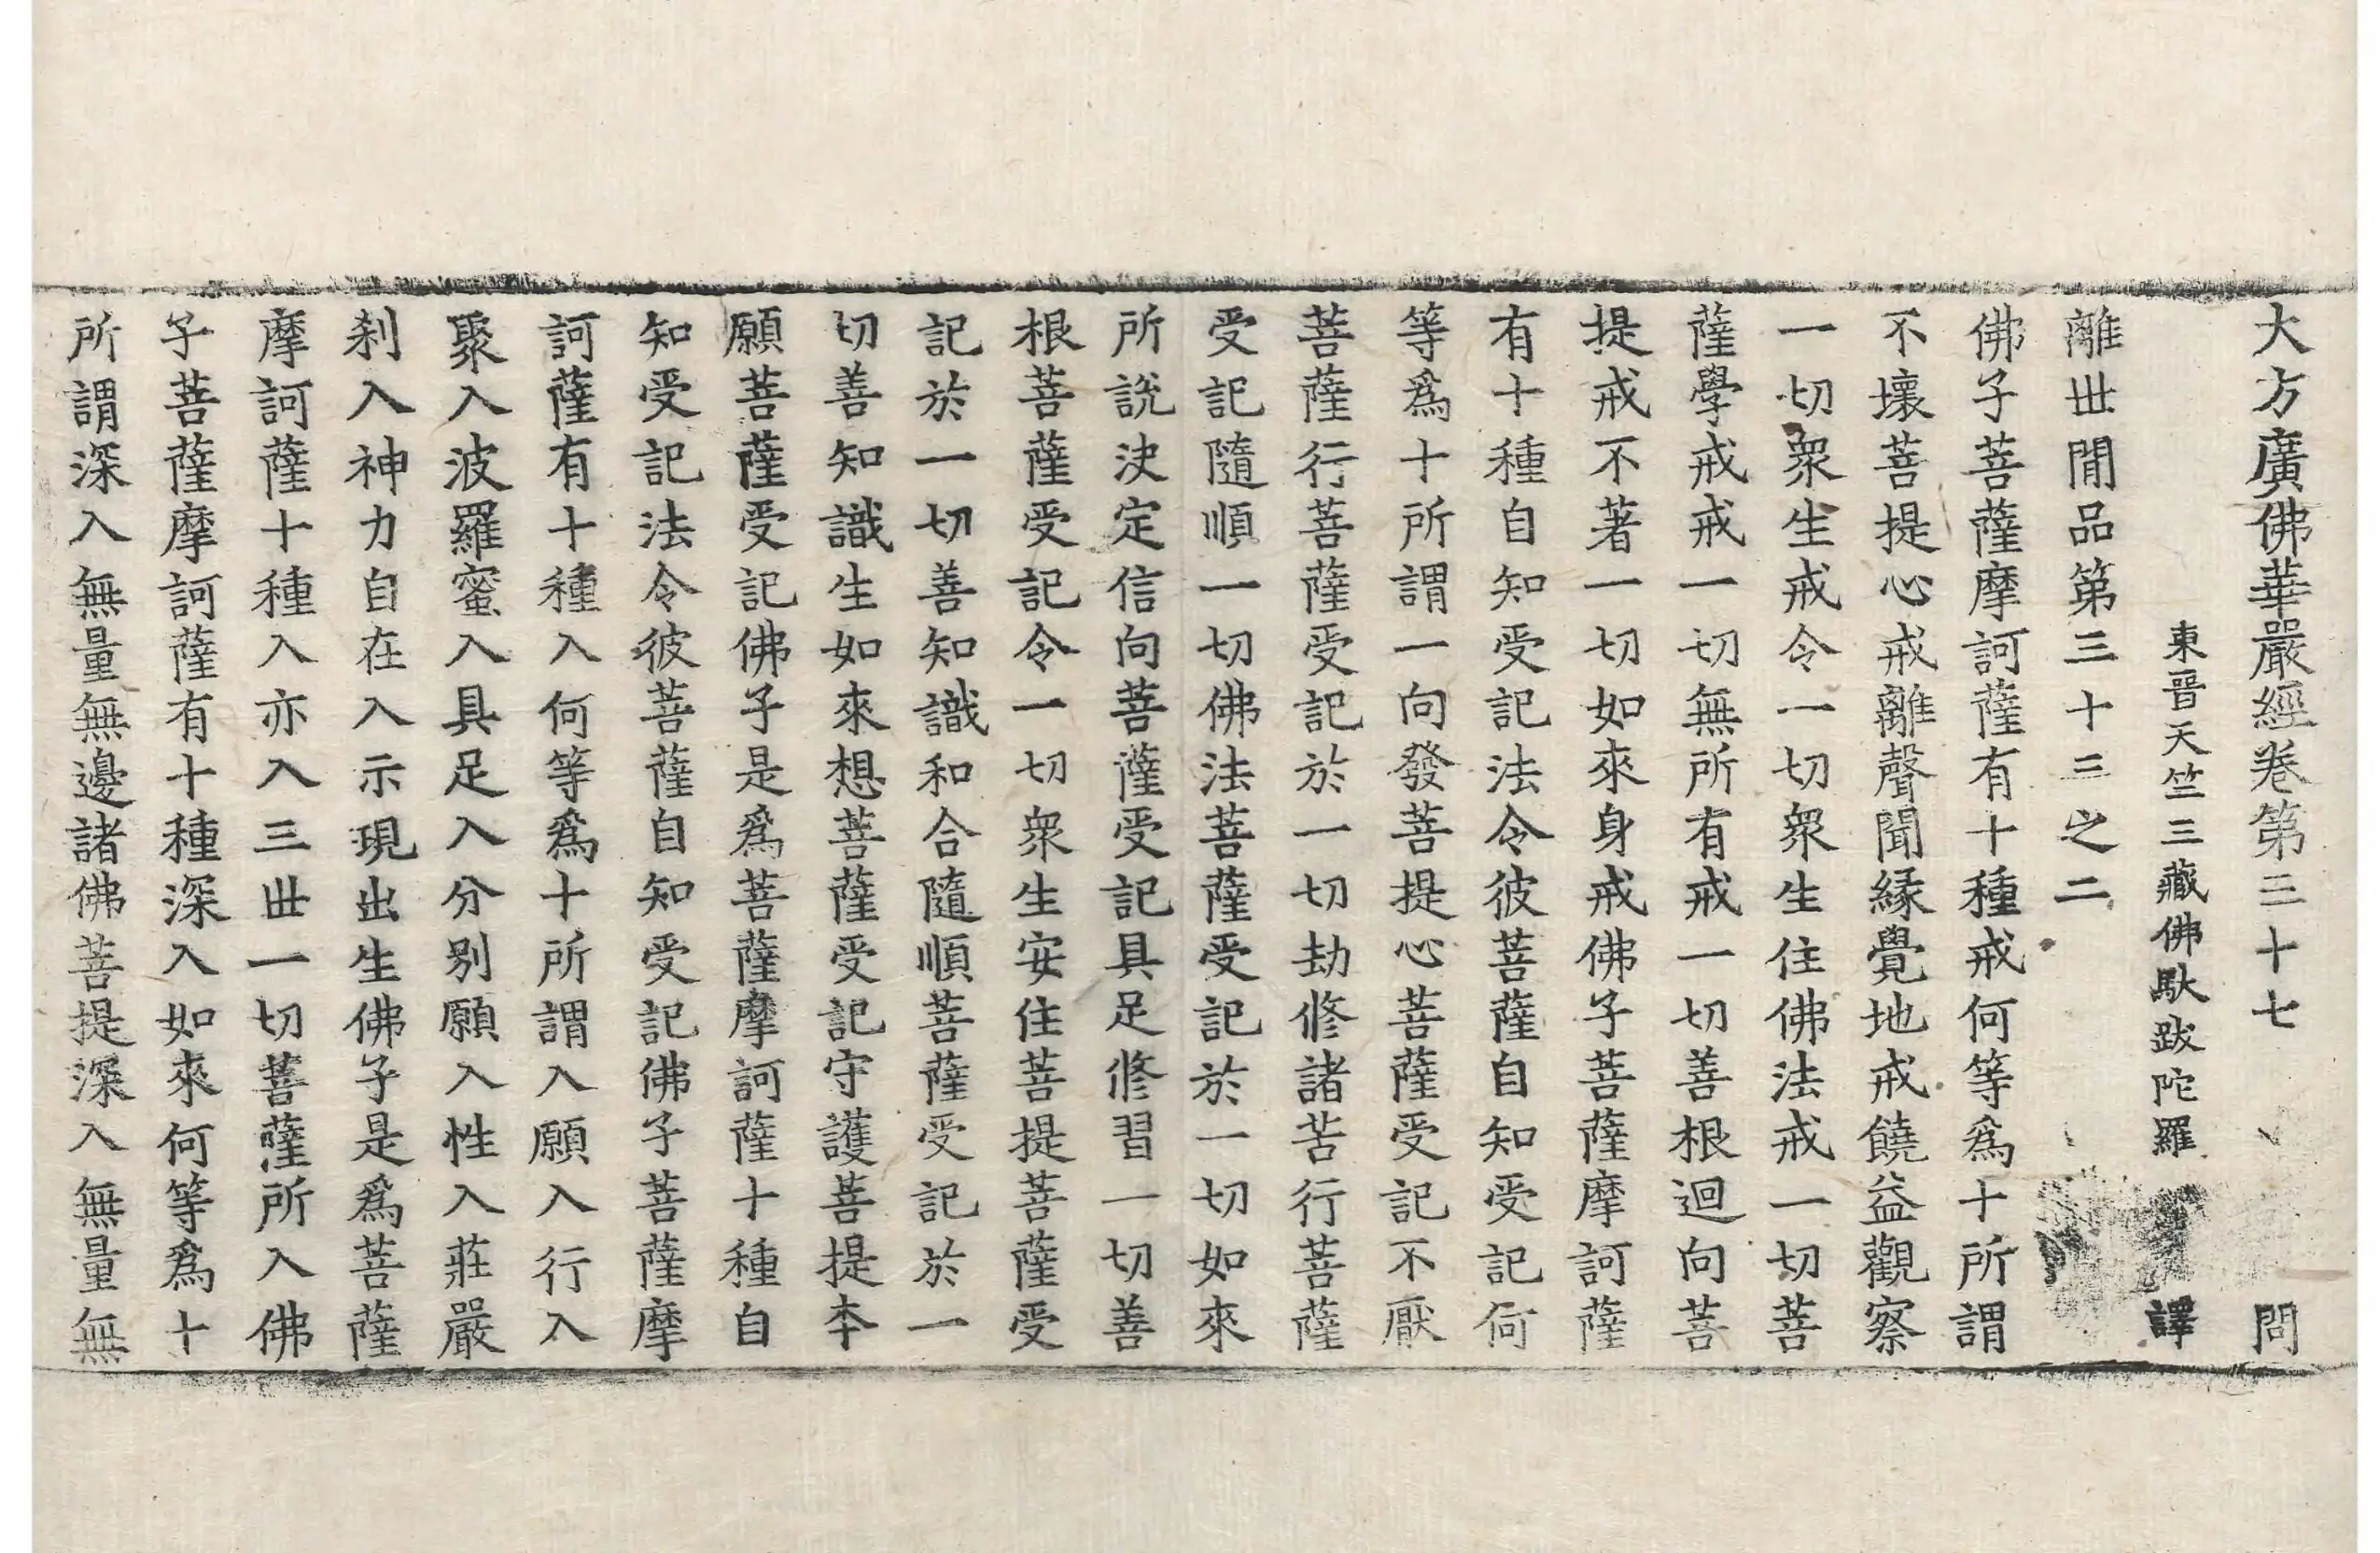 大方廣佛華嚴經卷第三十七　問
東晉天竺三藏佛馱跋陀羅　譯
離世間品第三十三之二
佛子菩薩摩訶薩有十種戒何等爲十所謂
不壞菩提心戒離聲聞緣覺地戒饒益觀察
一切衆生戒令一切衆生住佛法戒一切菩
薩學戒戒一切無所有戒一切善根迴向菩
提戒不著一切如來身戒佛子菩薩摩訶薩
有十種自知受記法令彼菩薩自知受記何
等爲十所謂一向發菩提心菩薩受記不厭
菩薩行菩薩受記於一切劫修諸苦行菩薩
受記隨順一切佛法菩薩受記於一切如來
所說決定信向菩薩受記具足修習一切善
根菩薩受記令一切衆生安住菩提菩薩受
記於一切善知識和合隨順菩薩受記於一
切善知識生如來想菩薩受記守護菩提本
願菩薩受記佛子是爲菩薩摩訶薩十種自
知受記法令彼菩薩自知受記佛子菩薩摩
訶薩有十種入何等爲十所謂入願入行入
聚入波羅蜜入具足入分別願入性入莊嚴
刹入神力自在入示現出生佛子是爲菩薩
摩訶薩十種入亦入三世一切菩薩所入佛
子菩薩摩訶薩有十種深入如來何等爲十
所謂深入無量無邊諸佛菩提深入無量無